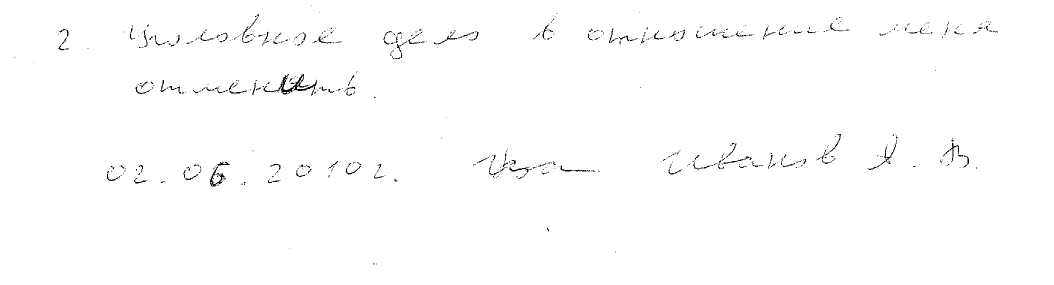 2. Уголовное дело в отношение меня
отменить.
02.06.2010г. Иванов А. В.